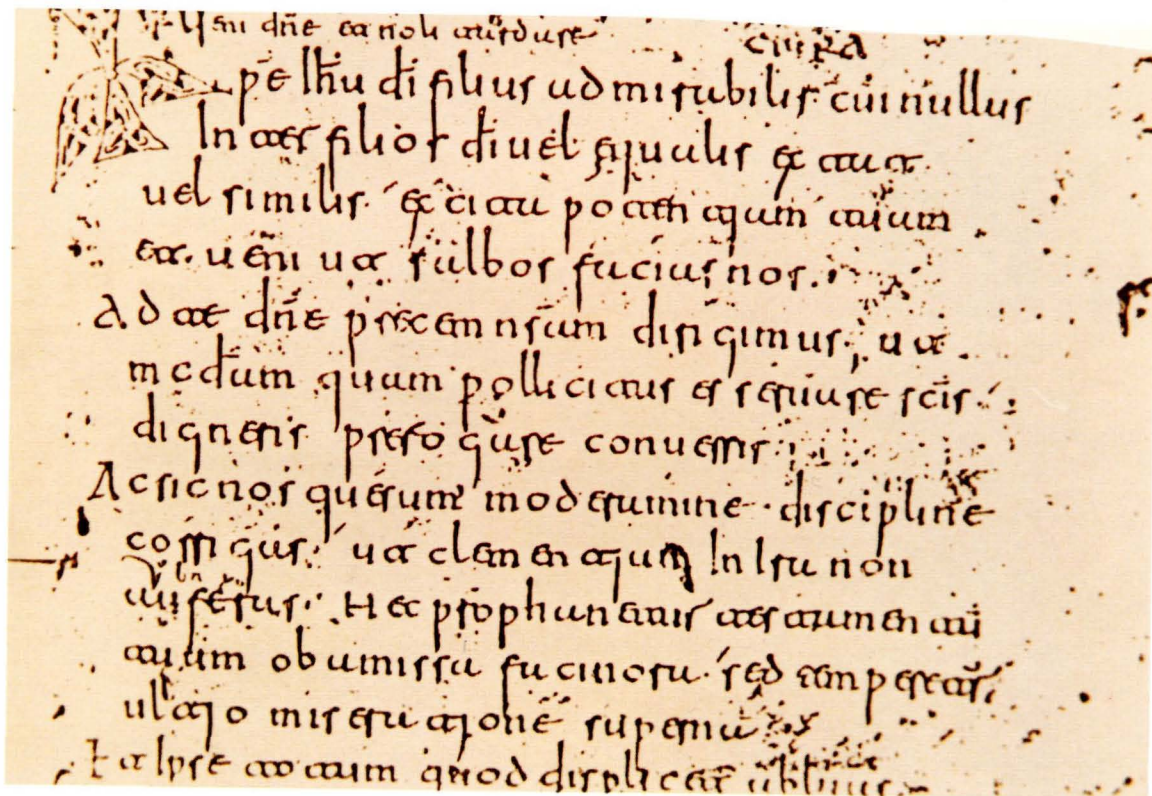 Veni dne et noli tardare
xpe Ihu di filius admirabilis cui nullus
Inter filios di vel equalis extat
vel similis excita potentiam tuam
et veni ut salbos facias nos
Ad te dne precem nsam dirigimus ut
mcdiam quam pollicitus es servare scis
digneris prerogare conversis
Ac sic nos quesum moderamine discipline
corrigas ut clementiam In Ira non
auferas Nec prophanetis testamentu
tuum ob amissa facinora sed
miseratione superna
Et Ipse totum quod displicet abluas